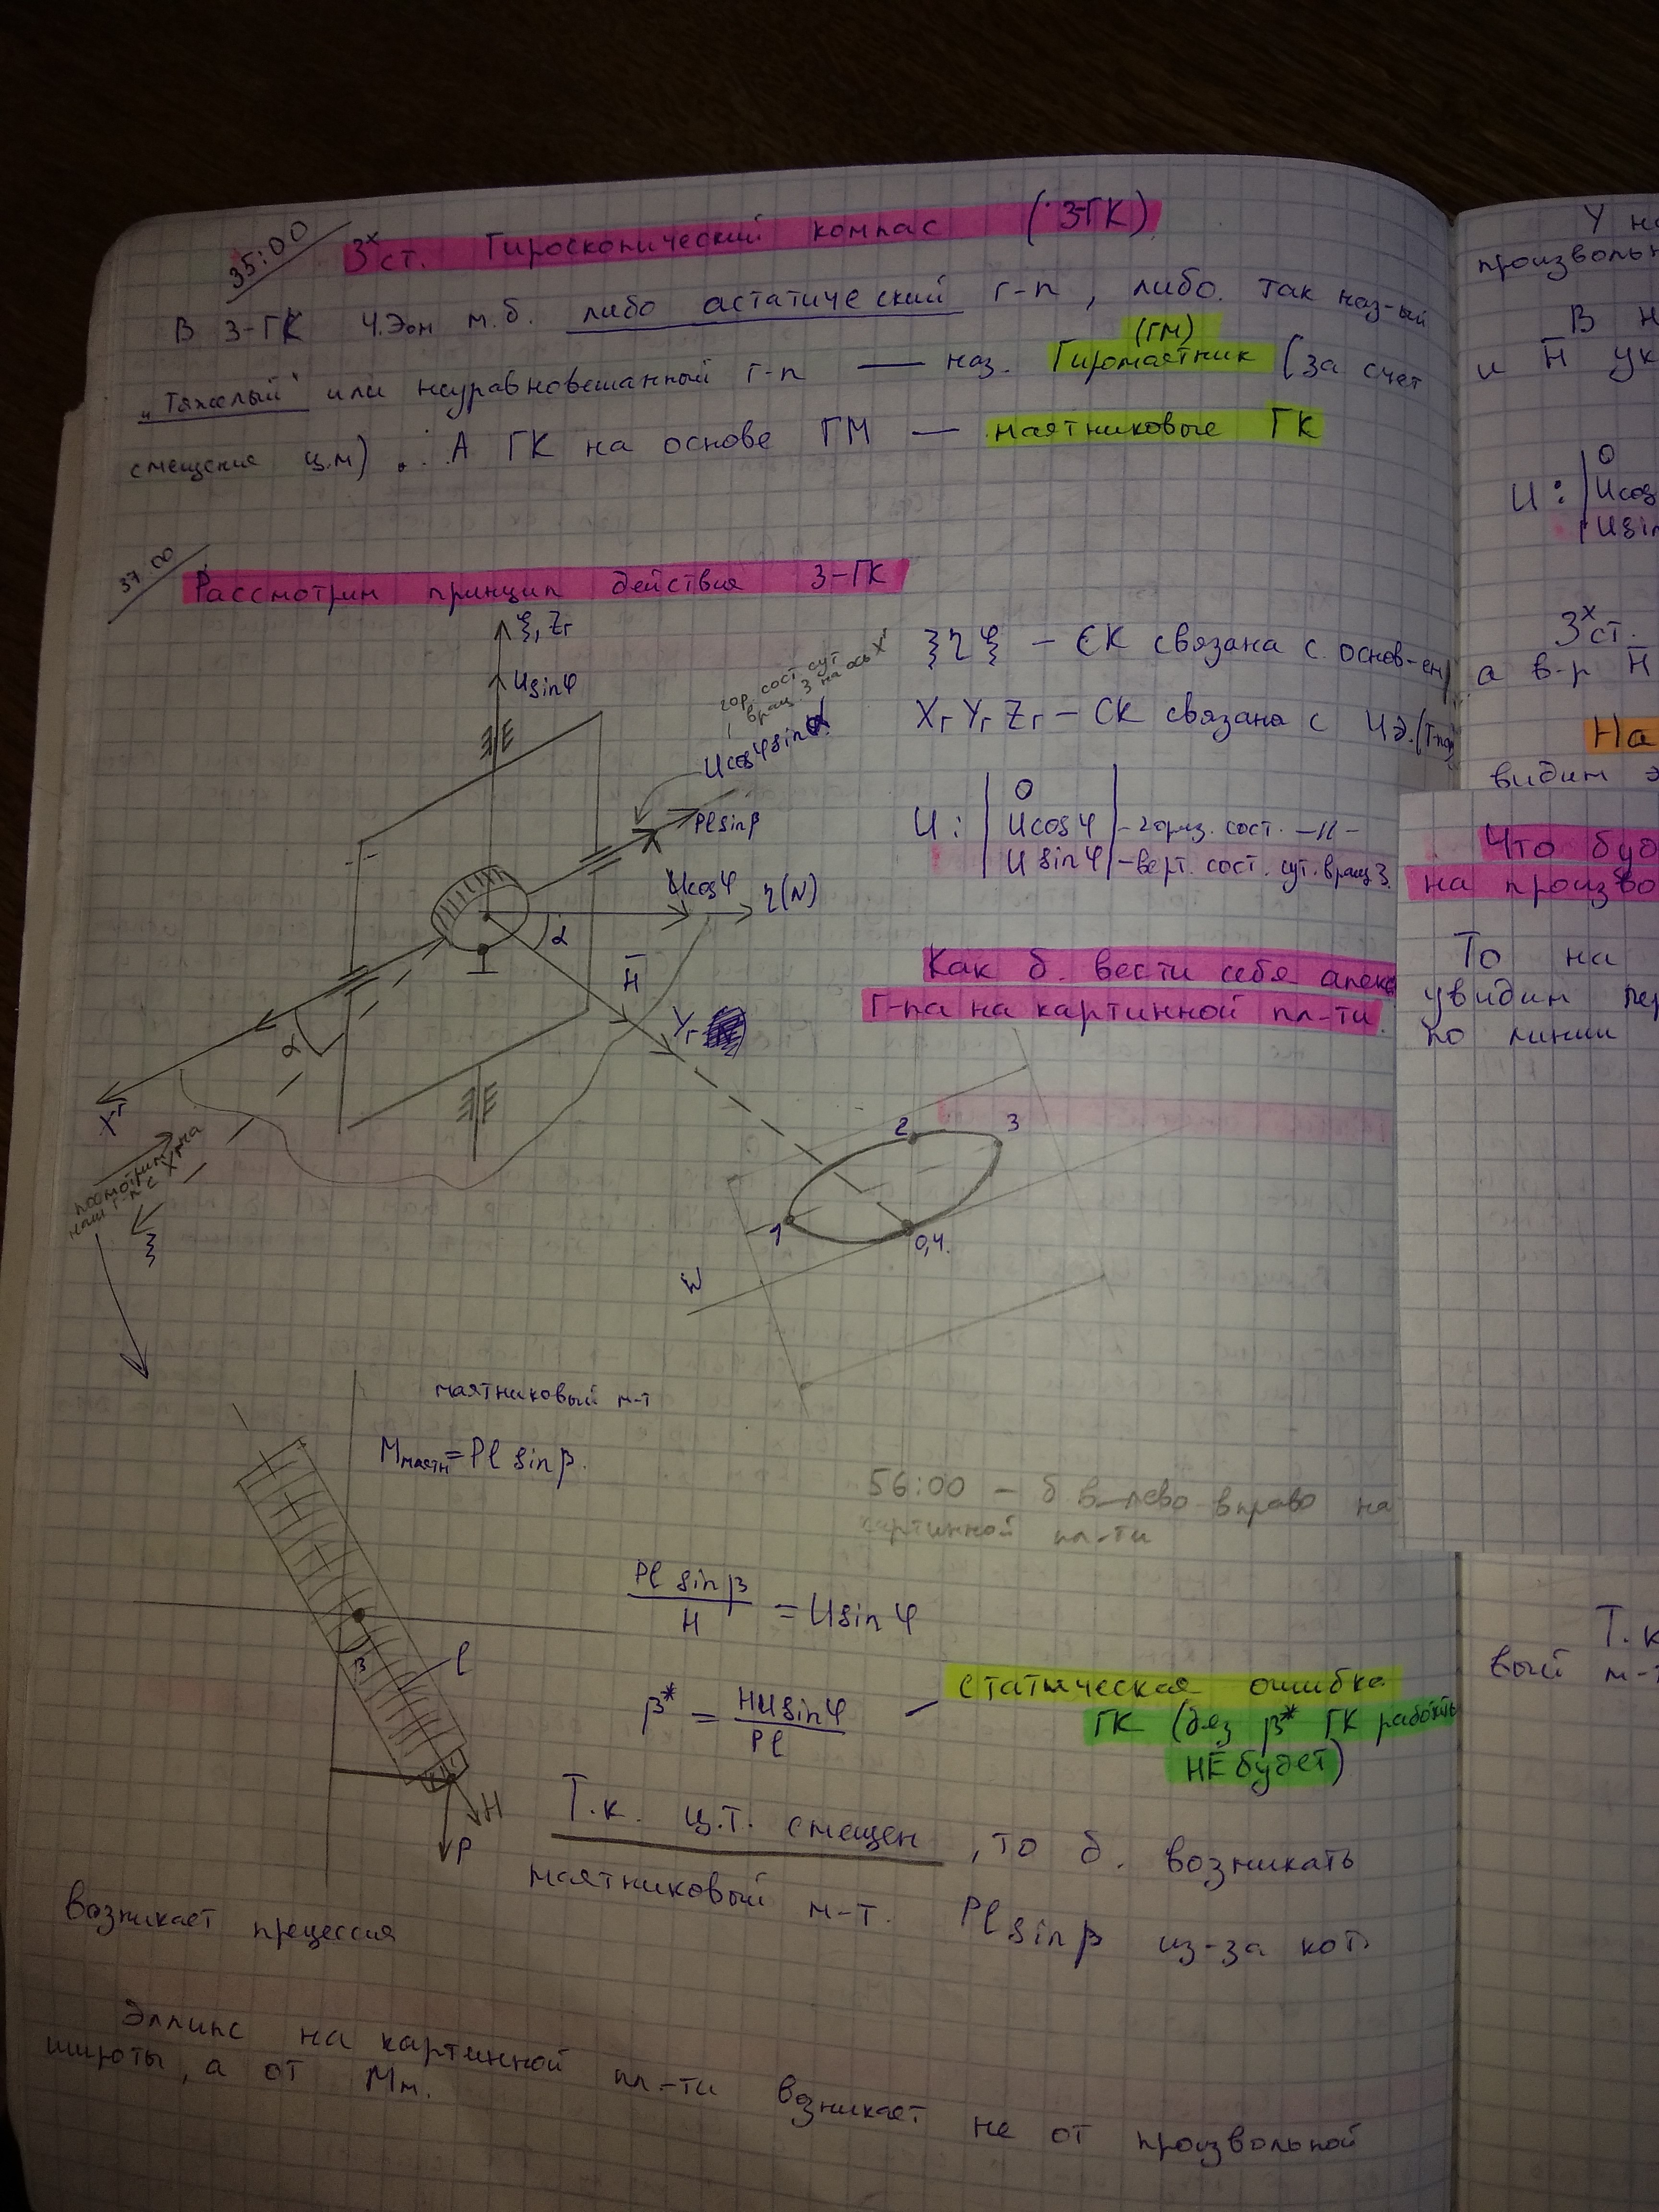 35:00
3х ст. Гироскопический компас (3-ГК)
В 3-ГК Ч.Эом м.б. либо астатический г-п, либо так наз-ый
"тяжелый" или неуравновешанный г-п — наз. Гиромаятник (за счет
(ГМ)
смещения ц.м). А ГК на основе ГМ — маятниковые ГК
37:00
Рассмотрим принцип действия 3-ГК
ξ, Zг
Usinφ
гор. сост сут
вращ. З на ось X
Ucosφsinα
Plsinβ
Ucosφ
η(N)
α
H
Yг
α
Xг
посмотрим на
наш г-п с Xг
ξ
ξηζ — СК связана с основ-ем
XгYгZг — СК связана с ЧЭ.
U:
0
Ucosφ — гориз. сост. —//—
Usinφ — верт. сост. сут. вращ З.
Как б. вести себя апекс
Г-па на картинной пл-ти.
2
3
1
0,4.
W
маятниковый м-т
Mмаятн=Pl sinβ.
56:00 — б влево вправо на
картинной пл-ти
Pl sinβ / H = Usinφ
β
l
H
P
β* = HUsinφ / Pl — статическая ошибка
ГК (без β* ГК работать
НЕ будет)
Т.к. ц.т. смещен, то б. возникать
маятниковый м-т. Plsinβ из-за кот.
возникает прецессия
Эллипс на картинной пл-ти возникает не от произвольной
широты, а от Мм.
У
произволь
В н
и H ук
U:
0
Ucos
Usin
3х ст.
а в-р H
На
видим э
Что буд
на произво
То на
увидим пер
по линии
Т.к
вый м-